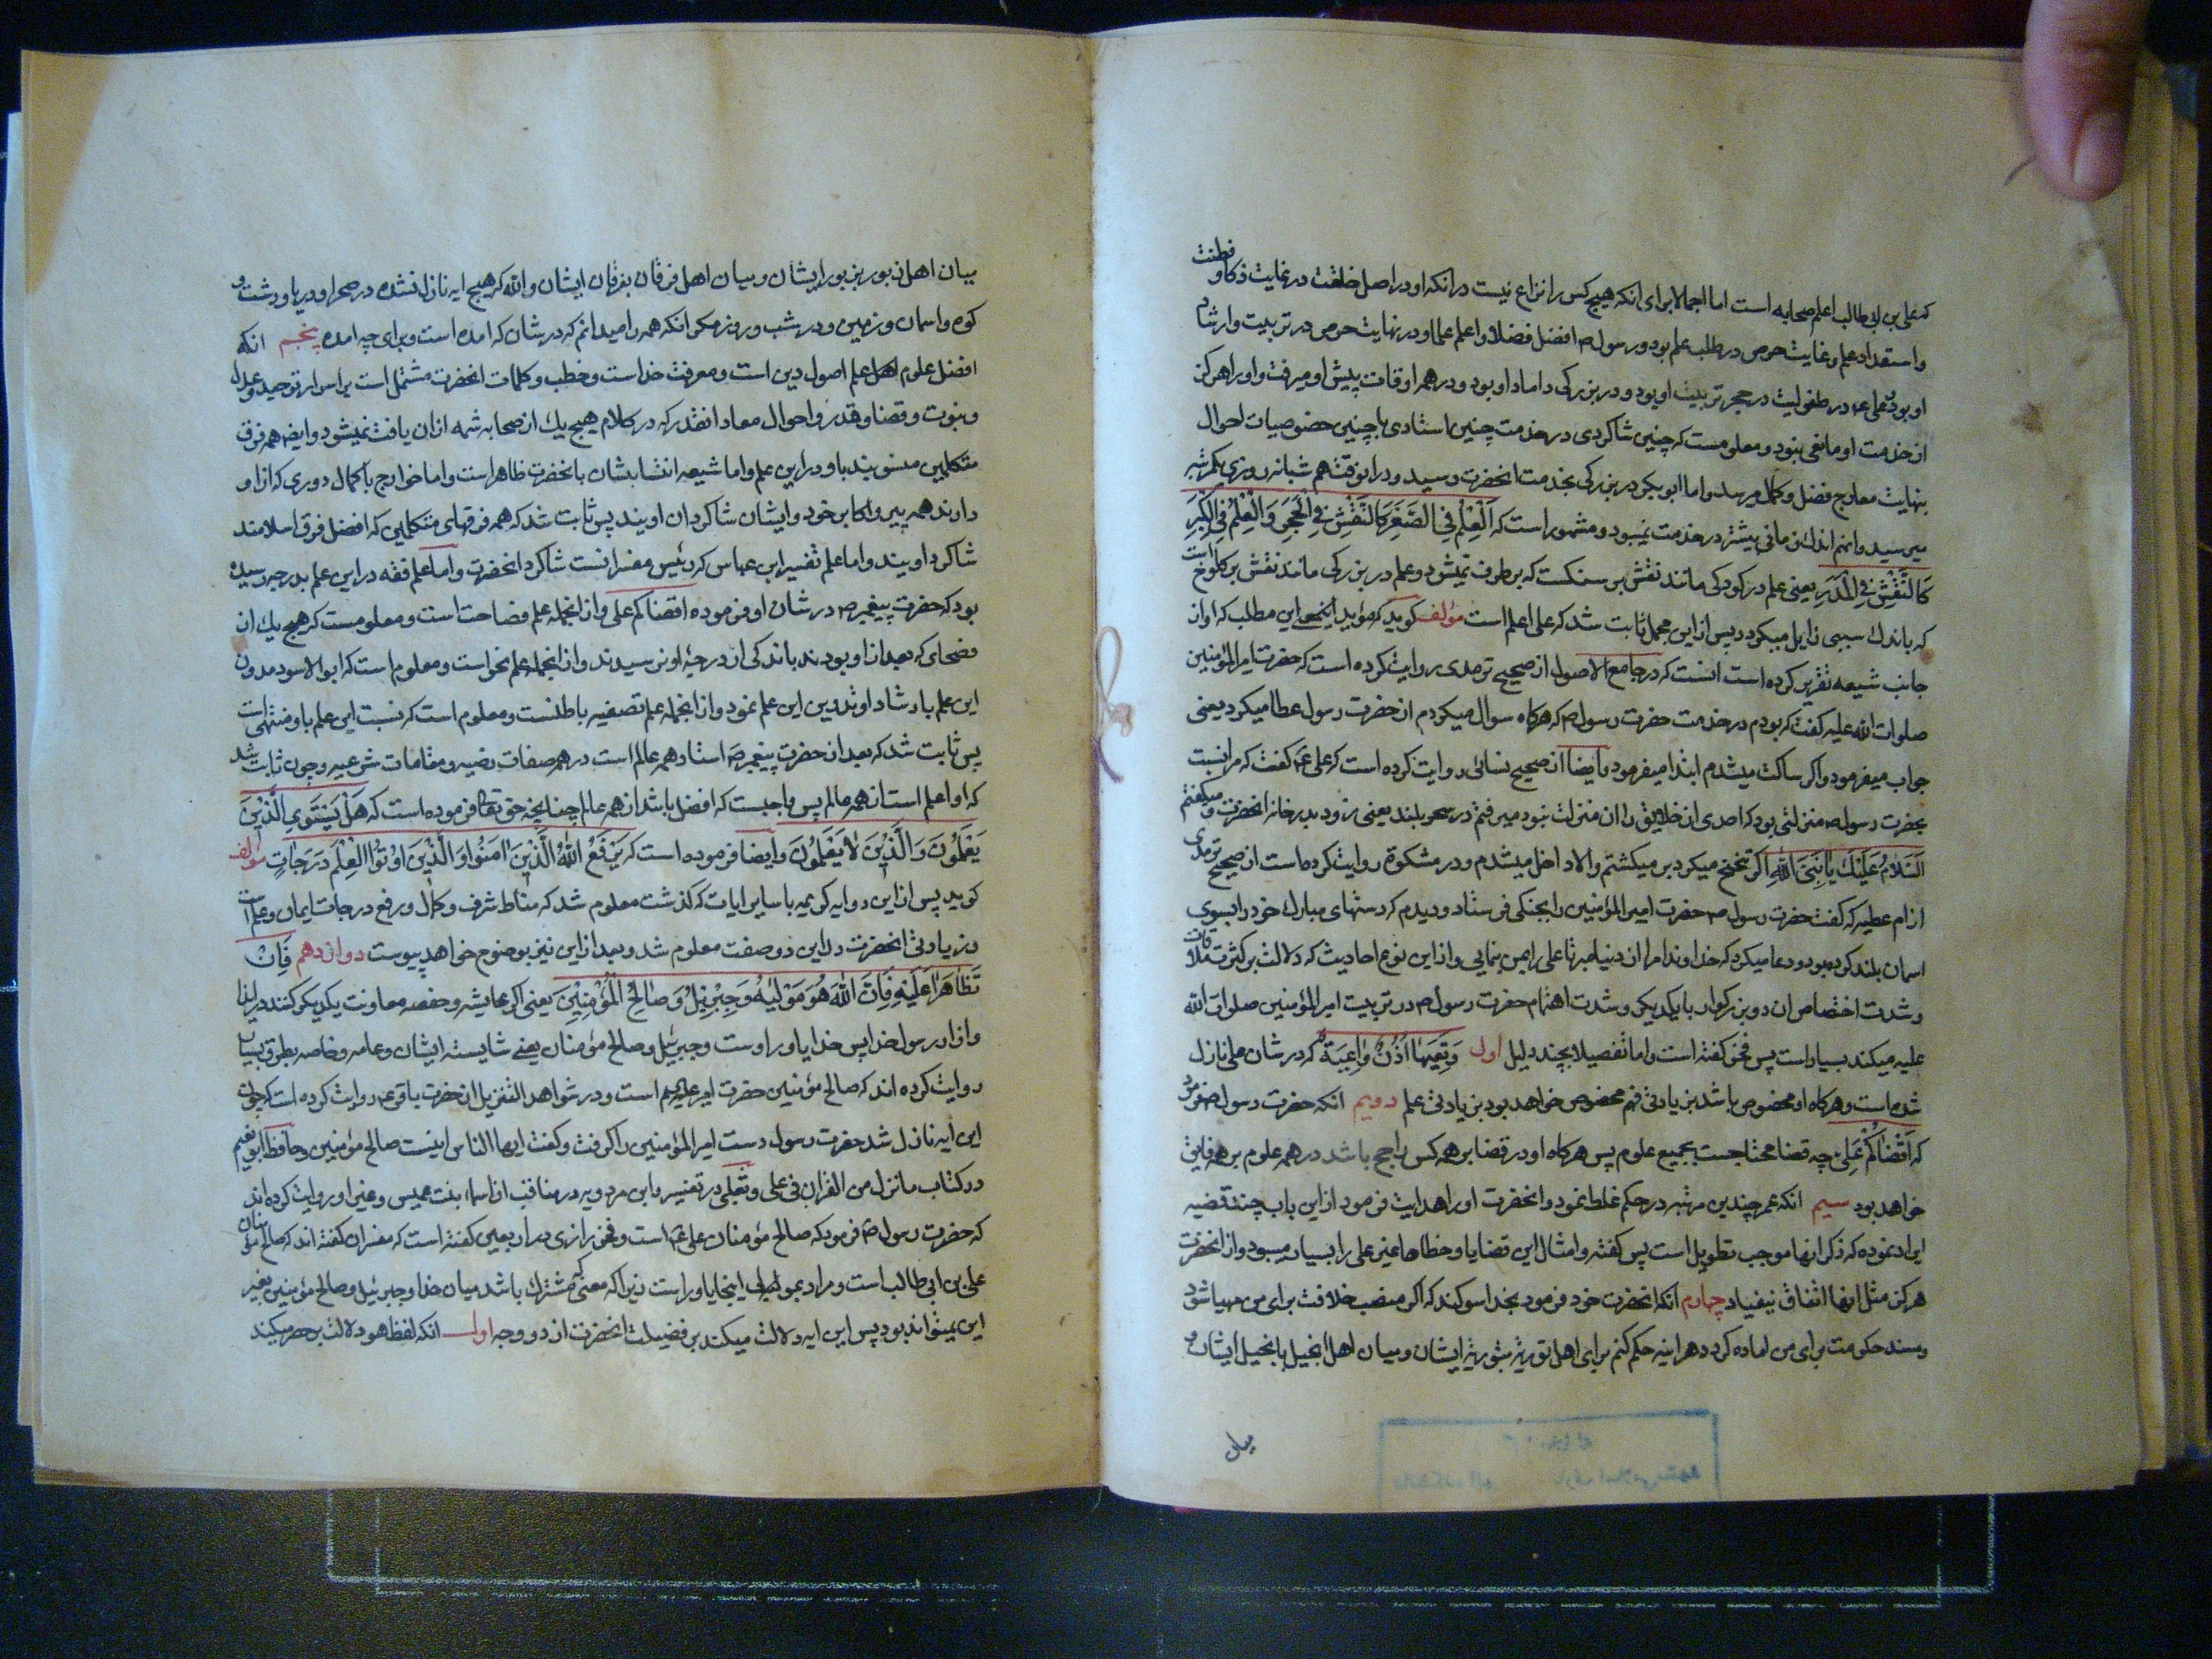 که علی بن ابی طالب اعلم صحابه است اما اجمالا برای انکه هیچ کس را نزاع نیست در انکه او در اصل خلقت در غایت ذکا و فطنت
و استعداد علم و غایت حرص در طلب علم بود و رسول ص افضل فضلا و اعلم علما و در نهایت حرص در تربیت و ارشاد
او بود و علی ع در طفولیت در حجر تربیت او بود و در بزرکی داماد او بود و در همه اوقات پیش او میرفت و او را هرکز
از خدمت او مانعی نبود و معلومست که چنین شاکردی در خدمت چنین استادی با چنین خصوصیات احوال
بنهایت معارج فضل و کمال میرسد و اما ابوبکر در بزرکی بخدمت انحضرت رسید و در انوقت هم شبانه روزی یکمرتبه
میرسید و انهم اندک زمانی بیشتر در خدمت نمیبود و مشهور است که اَلْعِلْمُ فِی الصِّغَرِ کَالنَّقْشِ فِی الْحَجَرِ وَ الْعِلْمُ فِی الْکِبَرِ
کَالنَّقْشِ فِی الْمَدَرِ یعنی علم در کودکی مانند نقش بر سنکست که برطرف نمیشود و علم در بزرکی مانند نقش بر کلوخ است
که باندک سببی زایل میکردد پس از این مجمل ثابت شد که علی اعلم است مؤلف کوید که مؤید این مطلب که او از
جانب شیعه تقریر کرده است انست که در جامع الاصول از صحیح ترمذی روایت کرده است که حضرت امیر المؤمنین
صلوات الله علیه کفت که بودم در خدمت حضرت رسول ص که هرکاه سوال میکردم از حضرت رسول عطا میکرد یعنی
جواب میفرمود و اکر ساکت میشدم ابتدا میفرمود و ایضا از صحیح نسائی روایت کرده است که علی ع کفت که مرا نسبت
بحضرت رسول ص منزلتی بود که احدی از خلایق را ان منزلت نبود میرفتم در سحر بلند یعنی زود بدر خانه انحضرت و میکفتم
اَلسَّلامُ عَلَیْکَ یا نَبِیَّ اللهِ اکر تنحنح میکرد بر میکشتم و الا داخل میشدم و در مشکوة روایت کرده است از صحیح ترمذی
از ام عطیه که کفت حضرت رسول ص حضرت امیر المؤمنین را بجنکی فرستاد و دیدم که دستهای مبارک خود را بسوی
اسمان بلند کرده بود و دعا میکرد که خداوندا مرا از دنیا مبر تا علی را بمن بنمایی و از این نوع احادیث که دلالت بر کثرت ملاقات
و شدت اختصاص ان دو بزرکوار بایکدیکر و شدت اهتمام حضرت رسول ص در تربیت امیر المؤمنین صلوات الله
علیه میکند بسیار است پس فخر کفته است و اما تفصیلا بچند دلیل اول وَ تَعِیَها اُذُنٌ واعِیَةٌ که در شان علی نازل
شده است و هرکاه او مخصوص باشد بزیادتی فهم مخصوص خواهد بود بزیادتی علم دویم انکه حضرت رسول ص فرمود
که اَقْضاکُمْ عَلِیٌّ چه قضا محتاجست بجمیع علوم پس هرکاه او در قضا بر همه کس راجح باشد در همه علوم بر همه فایق
خواهد بود سیم انکه عمر چندین مرتبه در حکم غلط نمود و انحضرت او را هدایت فرمود از این باب چند قضیه
ایراد نموده که ذکر انها موجب تطویل است پس کفته و امثال این قضایا و خطاها غیر علی را بسیار میبود و از انحضرت
هرکز مثل انها اتفاق نیفتاد چهارم انکه انحضرت خود فرمود بخدا سوکند که اکر منصب خلافت برای من مهیا شود
و مسند حکومت برای من اماده کردد هراینه حکم کنم برای اهل توریة بتوریة ایشان و میان اهل انجیل بانجیل ایشان و
میان
میان اهل زبور بزبور ایشان و میان اهل فرقان بفرقان ایشان و الله که هیچ ایه نازل نشده در صحرا و دریا و دشت و
کوه و اسمان و زمین و در شب و روز مکر انکه همه را میدانم که در شان که امده است و برای چه امده پنجم انکه
افضل علوم علم اصول دین است و معرفت خداست و خطب و کلمات انحضرت مشتمل است بر اسرار توحید و عدل
و نبوت و قضا و قدر و احوال معاد انقدر که در کلام هیچ یک از صحابه شمه از ان یافت نمیشود و ایضا همه فرق
متکلمین منسوبند باو در این علم و اما شیعه انتسابشان بانحضرت ظاهر است و اما خوارج با کمال دوری که از او
دارند همه پیرو اکابر خود و ایشان شاکردان اویند پس ثابت شد که همه فرقهای متکلمین که افضل فرق اسلامند
شاکرد اویند و اما علم تفسیر ابن عباس که رئیس مفسرانست شاکرد انحضرت و اما علم فقه در این علم بدرجه رسیده
بود که حضرت پیغمبر ص در شان او فرموده اقضاکم علی و از انجمله علم فصاحت است و معلومست که هیچ یک از
فصحای که بعد از او بودند باندکی از درجه او نرسیدند و از انجمله علم نحو است و معلوم است که ابو الاسود مدون
این علم بارشاد او تدوین این علم نمود و از انجمله علم تصفیه باطنست و معلوم است که نسبت این علم باو منتهی است
پس ثابت شد که بعد از حضرت پیغمبر ص استاد همه عالم است در همه صفات رضیه و مقامات شرعیه و چون ثابت شد
که او اعلم است از همه عالم پس واجبست که افضل باشد از همه عالم چنانچه حق تعالی فرموده است که هَلْ یَسْتَوِی الَّذینَ
یَعْلَمُونَ وَ الَّذینَ لا یَعْلَمُونَ و ایضا فرموده است که یَرْفَعُ اللهُ الَّذینَ امَنُوا وَ الَّذینَ اُوتُوا الْعِلْمَ دَرَجاتٍ مؤلف
کوید پس از این دو ایه کریمه با سایر ایات که کذشت معلوم شد که مناط شرف و کمال و رفع درجات ایمان و علم است
و زیادتی انحضرت در این دو صفت معلوم شد و بعد از این نیز بوضوح خواهد پیوست دوازدهم فَاِنْ
تَظاهَرا عَلَیْهِ فَاِنَّ اللهَ هُوَ مَوْلیهُ وَ جِبْریلُ وَ صالِحُ الْمُؤْمِنینَ یعنی اکر عایشه و حفصه معاونت یکدیکر کنند در ایذا
و ازار رسول خدا پس خدا یاور اوست و جبرئیل و صالح مؤمنان یعنی شایسته ایشان و عامه و خاصه بطرق بسیار
روایت کرده اند که صالح مؤمنین حضرت امیر علیه السلم است و در شواهد التنزیل از حضرت باقر ع روایت کرده است که چون
این ایه نازل شد حضرت رسول دست امیر المؤمنین را کرفت و کفت ایها الناس اینست صالح مؤمنین و حافظ ابو نعیم
در کتاب ما نزل من القران فی علی و ثعلبی در تفسیر و ابن مردویه در مناقب از اسماء بنت عمیس و غیر او روایت کرده اند
که حضرت رسول ص فرمود که صالح مؤمنان علی ع است و فخر رازی در اربعین کفته است که مفسران کفته اند که صالح مؤمنان
علی بن ابی طالب است و مراد بمولی اینجا یاور است زیرا که معنی که مشترک باشد میان خدا و جبرئیل و صالح مؤمنین بغیر
این نمیتواند بود پس این ایه دلالت میکند بر فضیلت انحضرت از دو وجه اول انکه لفظ هو دلالت بر حصر میکند